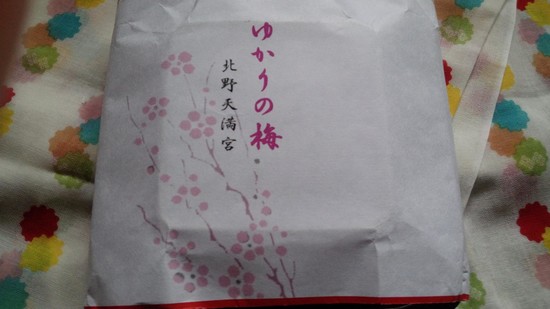 ゆかりの梅
北野天満宮